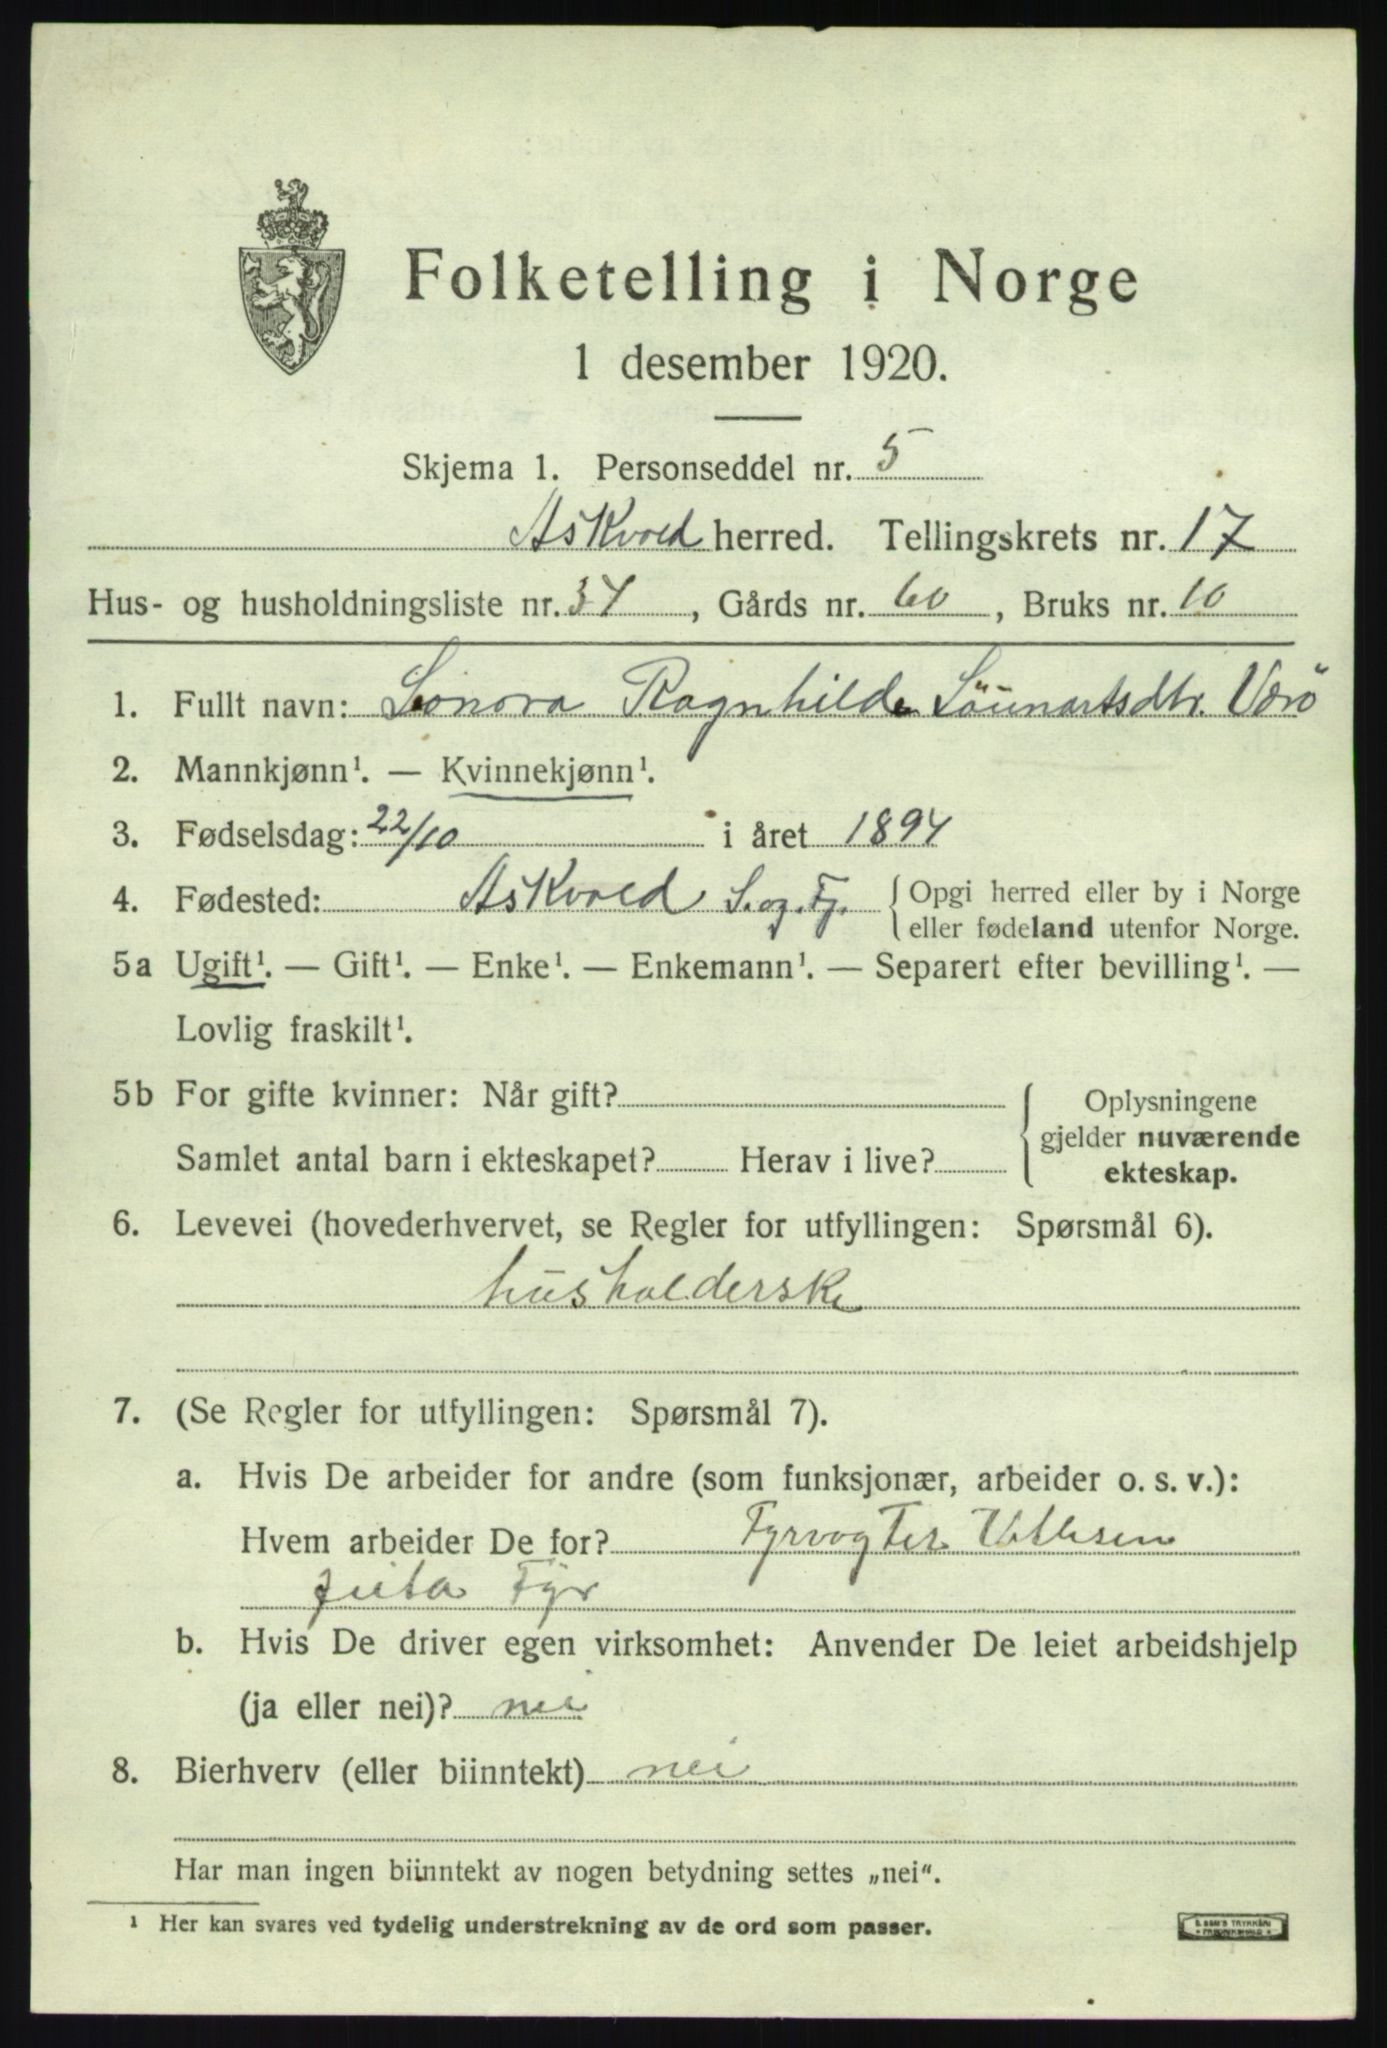 Folketelling i Norge
1 desember 1920.
Skjema 1. Personseddel nr. 5
Askvold herred. Tellingskrets nr. 17
Hus- og husholdningsliste nr. 34, Gårds nr. 60, Bruks nr. 10
1. Fullt navn: Lonora Ragnhilde Værö
2. Mannkjønn¹. — Kvinnekjønn¹.
3. Fødselsdag: 22/10 i året 1894
4. Fødested: Askvold S. og. Fj. { Opgi herred eller by i Norge
eller fødeland utenfor Norge.
5a Ugift¹. — Gift¹. — Enke¹. — Enkemann¹. — Separert efter bevilling¹. —
Lovlig fraskilt¹.
5b For gifte kvinner: Når gift?
Samlet antal barn i ekteskapet? Herav i live?
Oplysningene
gjelder nuværende
ekteskap.
6. Levevei (hovederhvervet, se Regler for utfyllingen: Spørsmål 6).
husholderske
7. (Se Regler for utfyllingen: Spørsmål 7).
a. Hvis De arbeider for andre (som funksjonær, arbeider o. s. v.):
Hvem arbeider De for? Fyrvogter
Fyr
b. Hvis De driver egen virksomhet: Anvender De leiet arbeidshjelp
(ja eller nei)? nei
8. Bierhverv (eller biinntekt) nei
Har man ingen biinntekt av nogen betydning settes „nei“.
¹ Her kan svares ved tydelig understrekning av de ord som passer.